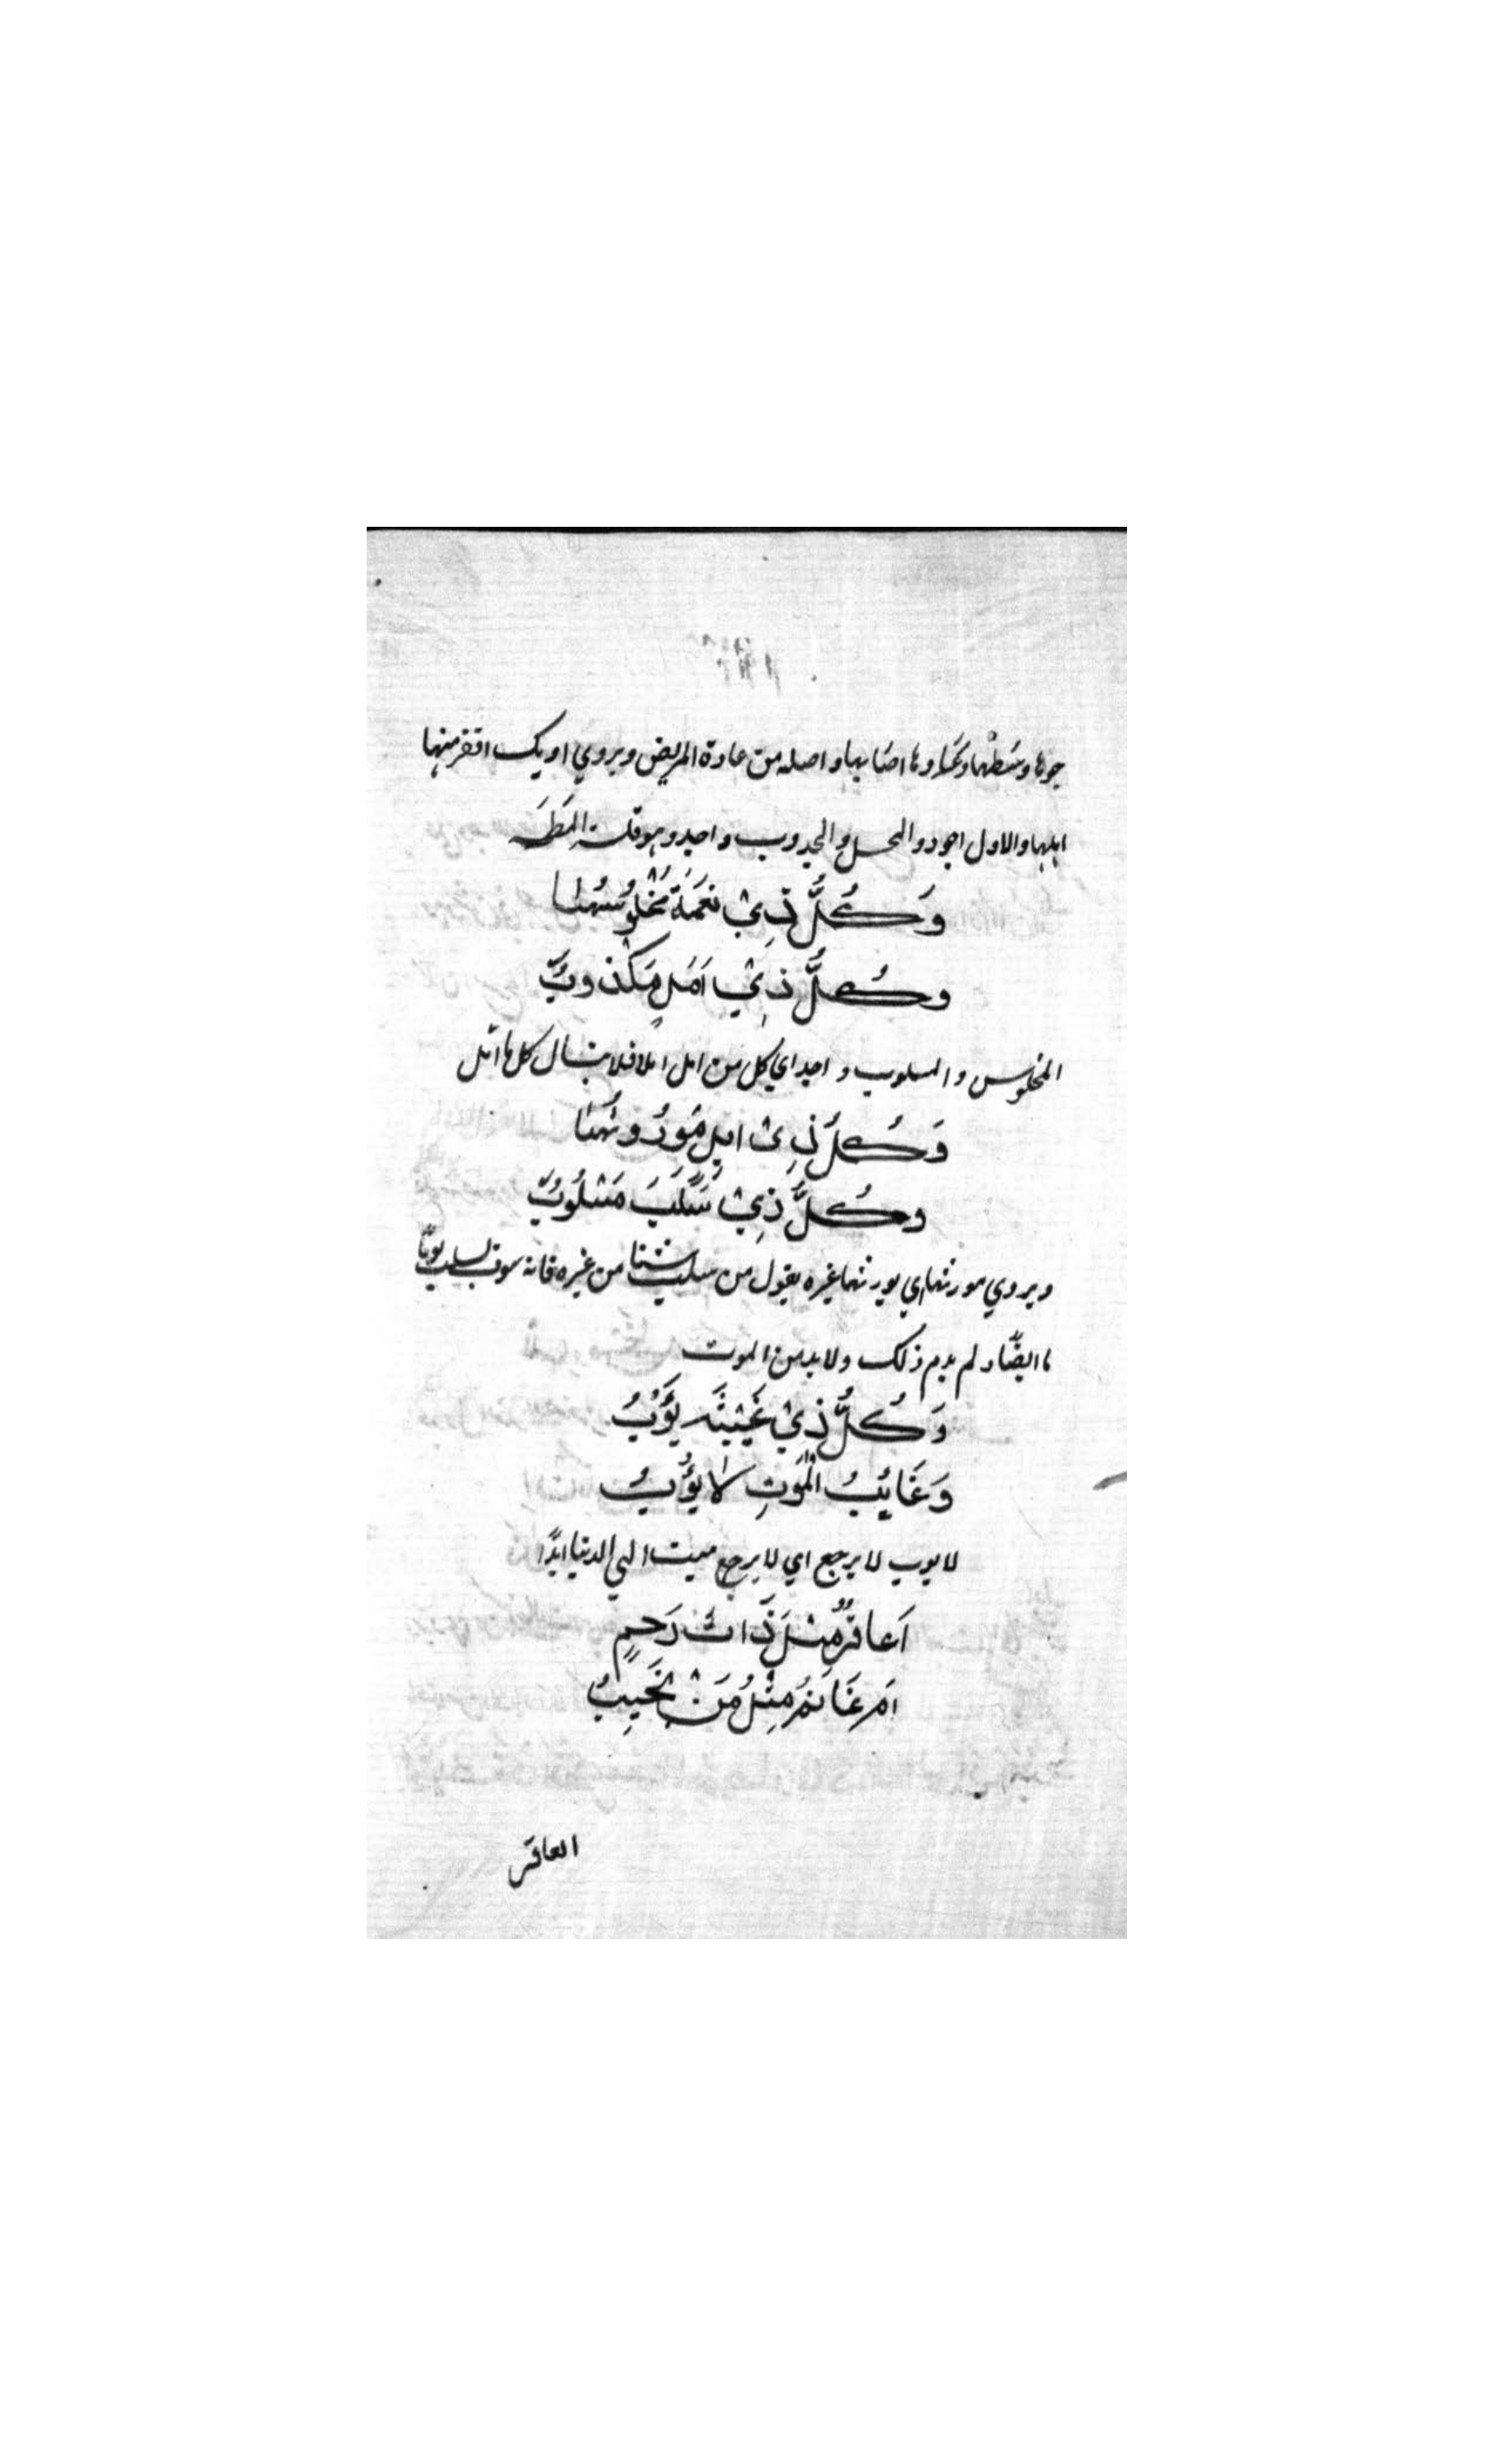 جوها وسطها وعادها اصابها واصله من عادة المريض ويروي او يك اقفر منها
اهلها والاول اجود والمحل والجدوب واحد وهو قلة المطر
وَكُلُّ ذِيْ نعْمَةٍ مَخْلُوسُهٰا
وكُلُّ ذِيْ اَمَلٍ مَكْذوبٌ
المخلوس والمسلوب واحد اي كل من امل املا فلا ينال كل ما امل
وَكُلُ ذِيْ ابِلٍ مَوْرُوثُهٰا
وكُلُّ ذِيْ سَلَبٍ مَسْلُوبٌ
ويروي مورثها اي يورثها غيره يقول من سلب شيئا من غيره فانه سوف يسلب يومًا
ما ايضًا ولم يدم ذلك ولابد من الموت
وَكُلُّ ذِيْ غَيْبَةٍ يَؤُبُ
وَغَايِبُ الْمَوتِ لا يَؤُبُ
لا يوب لا يرجع اي لا يرجع ميت الي الدنيا ابدًا
اَعاقرٌ مِثلُ ذَاتِ رَحِمٍ
ام غَانمٌ مِثْلُ مَنْ يَخِيبُ
العاقر